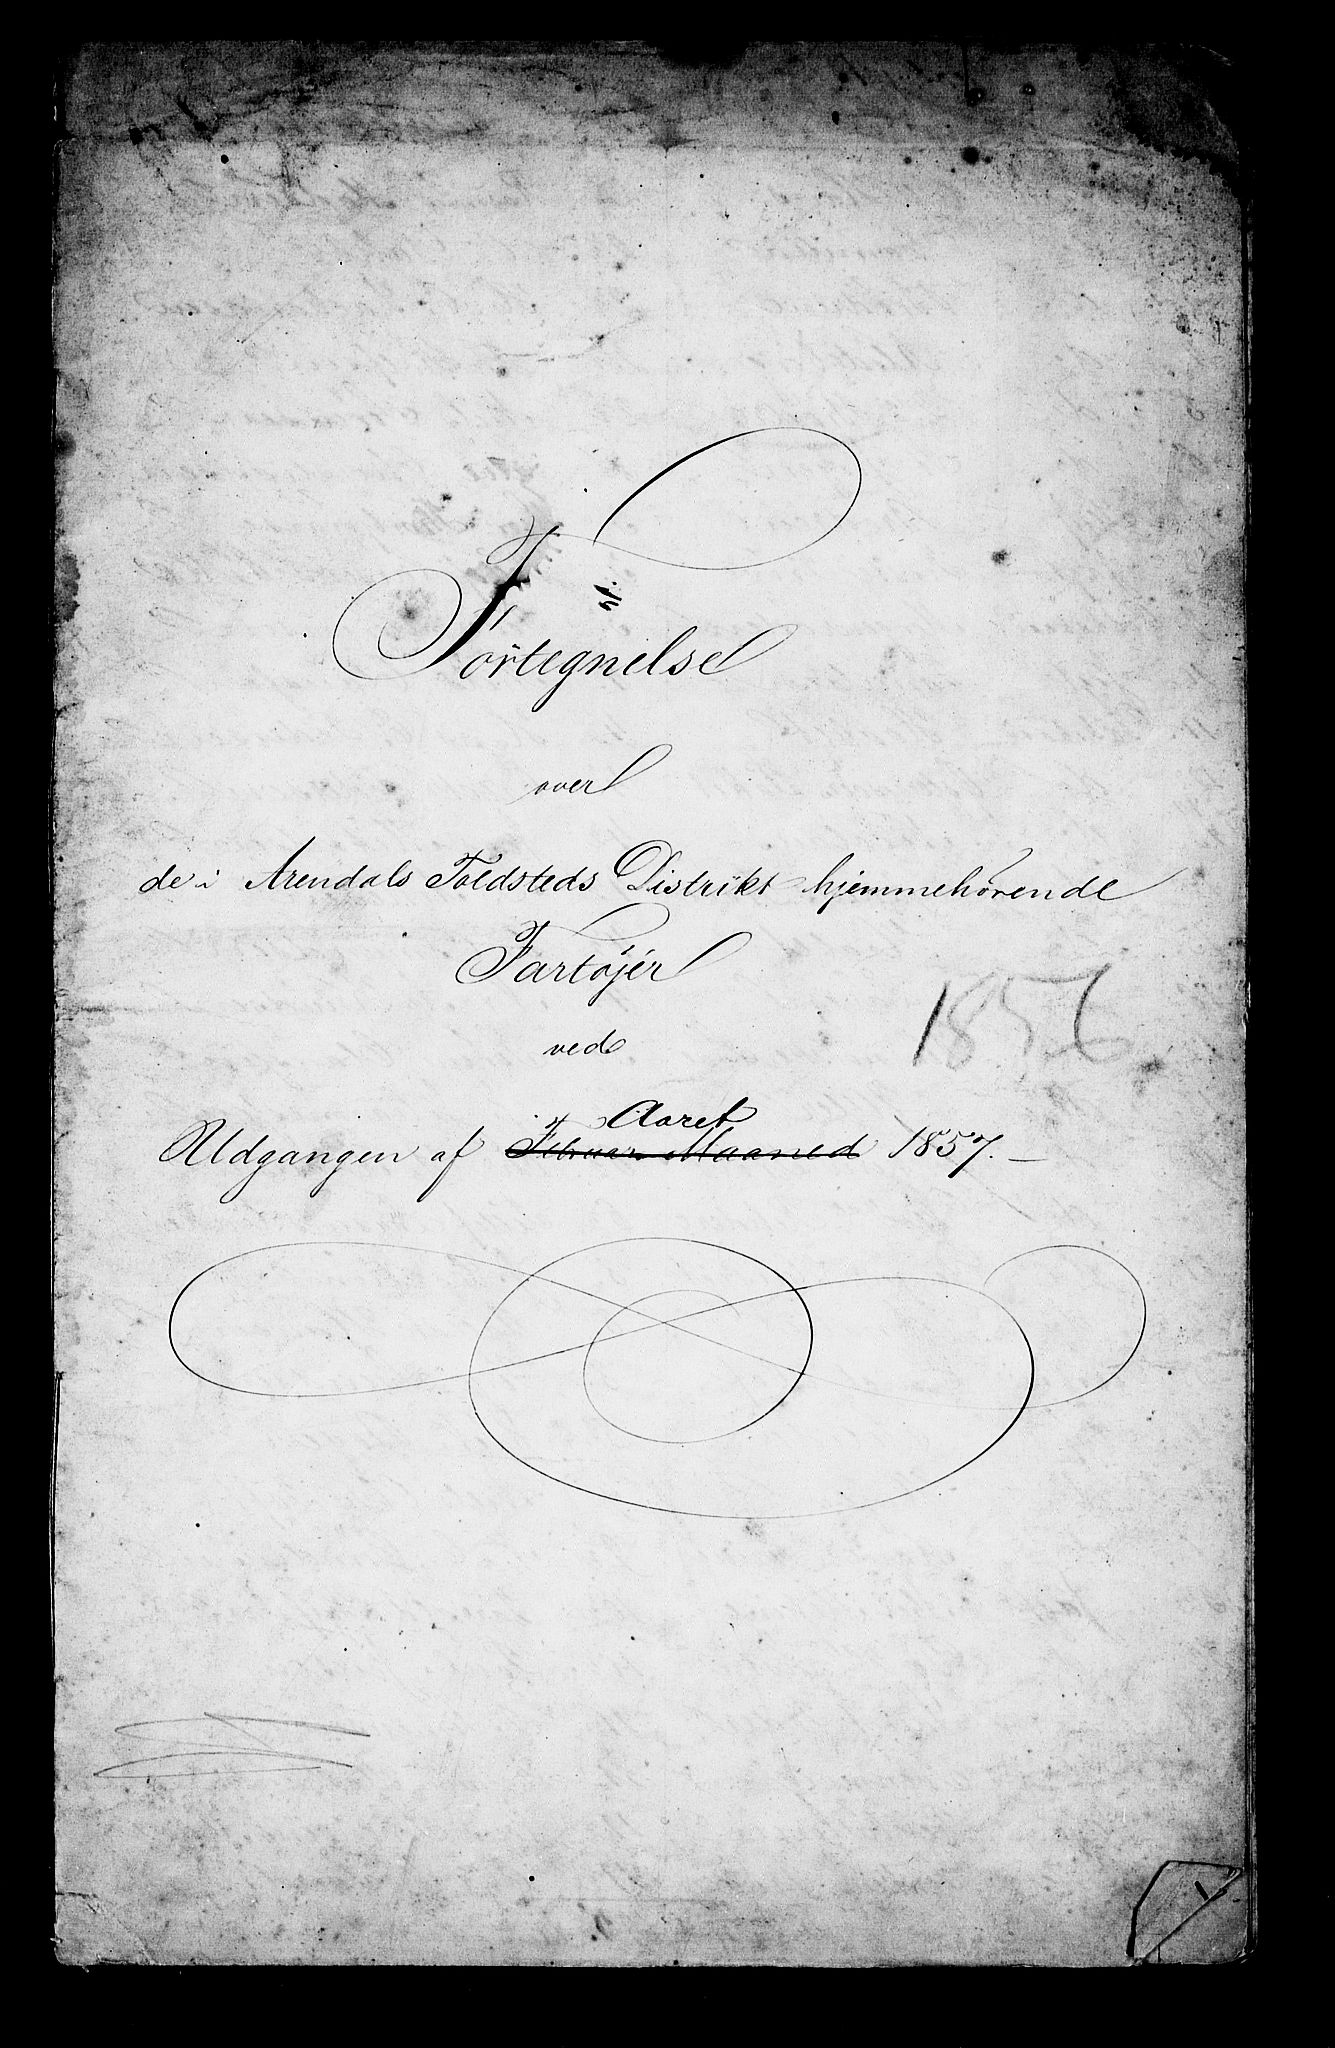 Fortegnelse
over
de i Arendals Toldsteds Distrikt hjemmehørende
Fartøjer
1856
ved
Aaret
Udgangen af Februar Maaned 1857. —